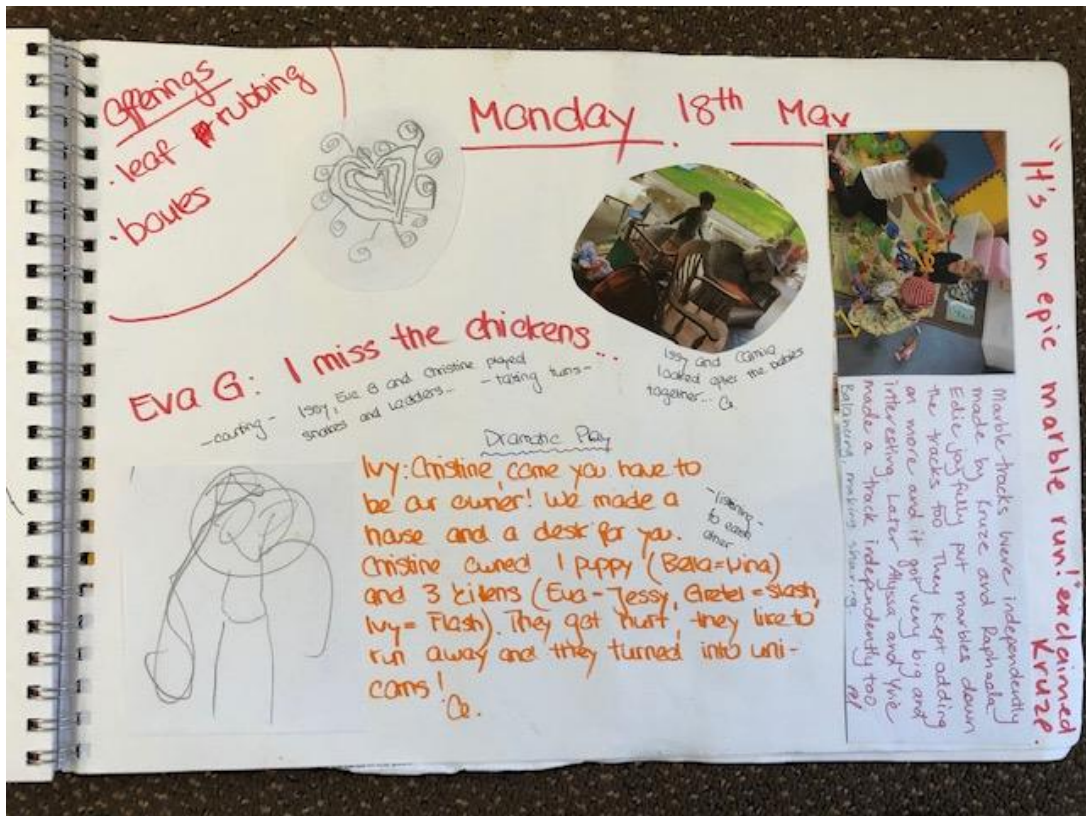 Offerings
. leaf rubbing
. boules
Monday 18th May
Eva G: I miss the chickens...
- counting -
Issy, Eva G and Christine played
snakes and ladders...
- taking turns -
Issy and Camia
looked after the babies
together... Ce.
Dramatic Play
Ivy: Christine, come you have to
be our owner! We made a
house and a desk for you.
Christine owned 1 puppy (Bella = Lina)
and 3 kittens (Eva - Jessy, Gretel = Slash,
Ivy = Flash). They got hurt, they like to
run away and they turned into uni-
corns!
Ce.
- listening -
to each
other
"It's an epic marble run!" exclaimed
Kruze.
Marble tracks were independently
made by Kruze and Raphaela
Edie joyfully put marbles down
the tracks too. They kept adding
on more and it got very big and
interesting. Later Alyssa and Yvie
made a track independently too
Balancing, making, sharing.